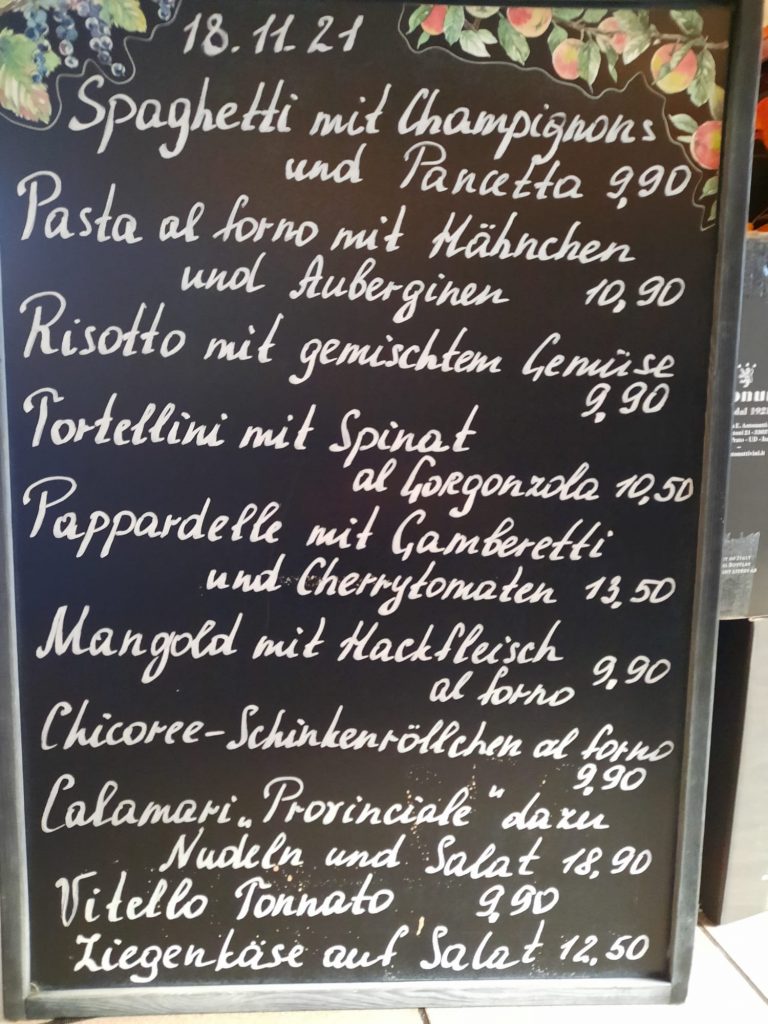 18.11.21
Spaghetti mit Champignons
und Pancetta 9,90
Pasta al forno mit Hähnchen
und Auberginen 10,90
Risotto mit gemischtem Gemüse
9,90
Tortellini mit Spinat
al Gorgonzola 10,50
Pappardelle mit Gamberetti
und Cherrytomaten 13,50
Mangold mit Hackfleisch
al forno 9,90
Chicoree-Schinkenröllchen al forno
9,90
Calamari „Provinciale" dazu
Nudeln und Salat 18,90
Vitello Tonnato 9,90
Ziegenkäse auf Salat 12,50
dal 192